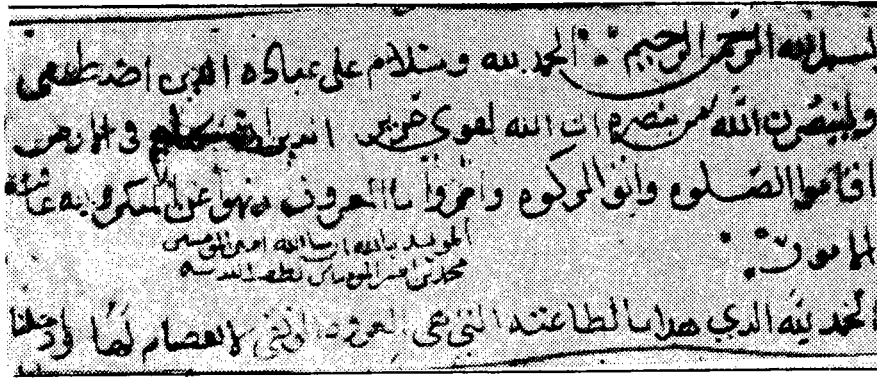 بسم الله الرحمن الرحيم الحمد لله وسلام على عباده الذين اصطفى
ولينصرن الله من ينصره ان الله لقوي عزيز الذين ان مكناهم في الارض
اقاموا الصلوه واتوا الزكوه وامروا بالمعروف ونهوا عن المنكر ولله عاقبة
الامور
المويد بالله ان شا الله امير المومنين
محمد بن امير المومنين لطف الله به
الحمد لله الذي هدانا لطاعته التي هي العروه الوثقى لا انفصام لها و